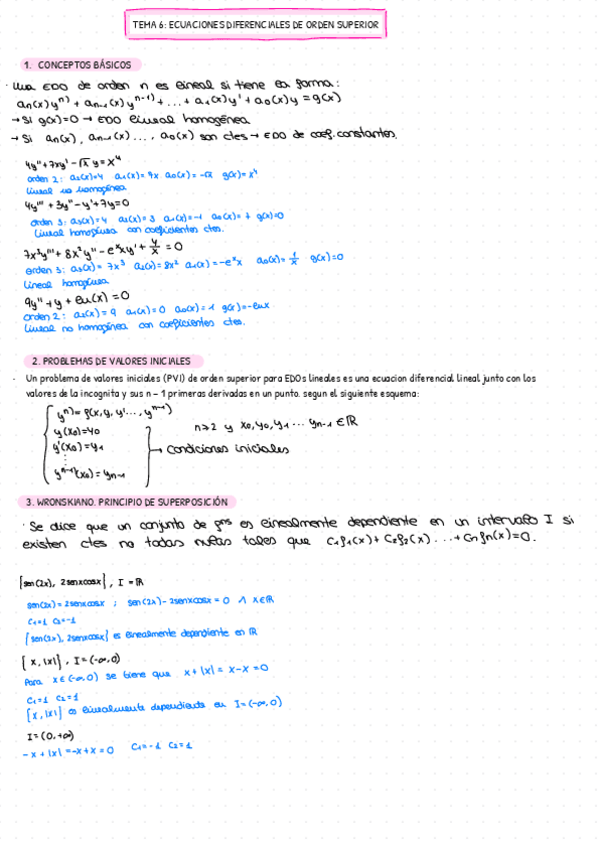 TEMA 6: ECUACIONES DIFERENCIALES DE ORDEN SUPERIOR
1. CONCEPTOS BÁSICOS
· Una EDO de orden n es lineal si tiene la forma:
an(x)yⁿ⁾ + an-1(x)yⁿ⁻¹⁾ + ... + a1(x)y' + a0(x)y = g(x)
→ Si g(x)=0 → EDO lineal homogénea
→ Si an(x), an-1(x) ..., a0(x) son ctes → EDO de coef. constantes.
4y'' + 7xy' - √x y = x⁴
orden 2: a2(x)=4 a1(x)=7x a0(x)=-√x g(x)=x⁴
lineal no homogénea
4y''' + 3y'' - y' + 7y = 0
orden 3: a3(x)=4 a2(x)=3 a1(x)=-1 a0(x)=7 g(x)=0
lineal homogénea con coeficientes ctes.
7x³y''' + 8x²y'' - eˣxy' + y/x = 0
orden 3: a3(x)=7x³ a2(x)=8x² a1(x)=-eˣx a0(x)=1/x g(x)=0
lineal homogénea
9y'' + y + ln(x) = 0
orden 2: a2(x)=9 a1(x)=0 a0(x)=1 g(x)=-lnx
lineal no homogénea con coeficientes ctes.
2. PROBLEMAS DE VALORES INICIALES
· Un problema de valores iniciales (PVI) de orden superior para EDOs lineales es una ecuacion diferencial lineal junto con los
valores de la incognita y sus n - 1 primeras derivadas en un punto. segun el siguiente esquema:
yⁿ⁾ = f(x, y, y' ..., yⁿ⁻¹⁾)
y(x0) = y0 n≥2 y x0, y0, y1 ... yn-1 ∈ ℝ
y'(x0) = y1 → condiciones iniciales
⋮
yⁿ⁻¹⁾(x0) = yn-1
3. WRONSKIANO. PRINCIPIO DE SUPERPOSICIÓN
· Se dice que un conjunto de fns es linealmente dependiente en un intervalo I si
existen ctes no todas nulas tales que c1f1(x) + c2f2(x) ... + cnfn(x) = 0.
{sen(2x), 2senxcosx}, I = ℝ
sen(2x) = 2senxcosx ; sen(2x) - 2senxcosx = 0 ∧ x∈ℝ
c1=1 c2=-1
{sen(2x), 2senxcosx} es linealmente dependiente en ℝ
{x, |x|}, I = (-∞,0)
Para x∈(-∞,0) se tiene que x + |x| = x - x = 0
c1=1 c2=1
{x, |x|} es linealmente dependiente en I = (-∞,0)
I = (0,+∞)
-x + |x| = -x + x = 0 c1=-1 c2=1